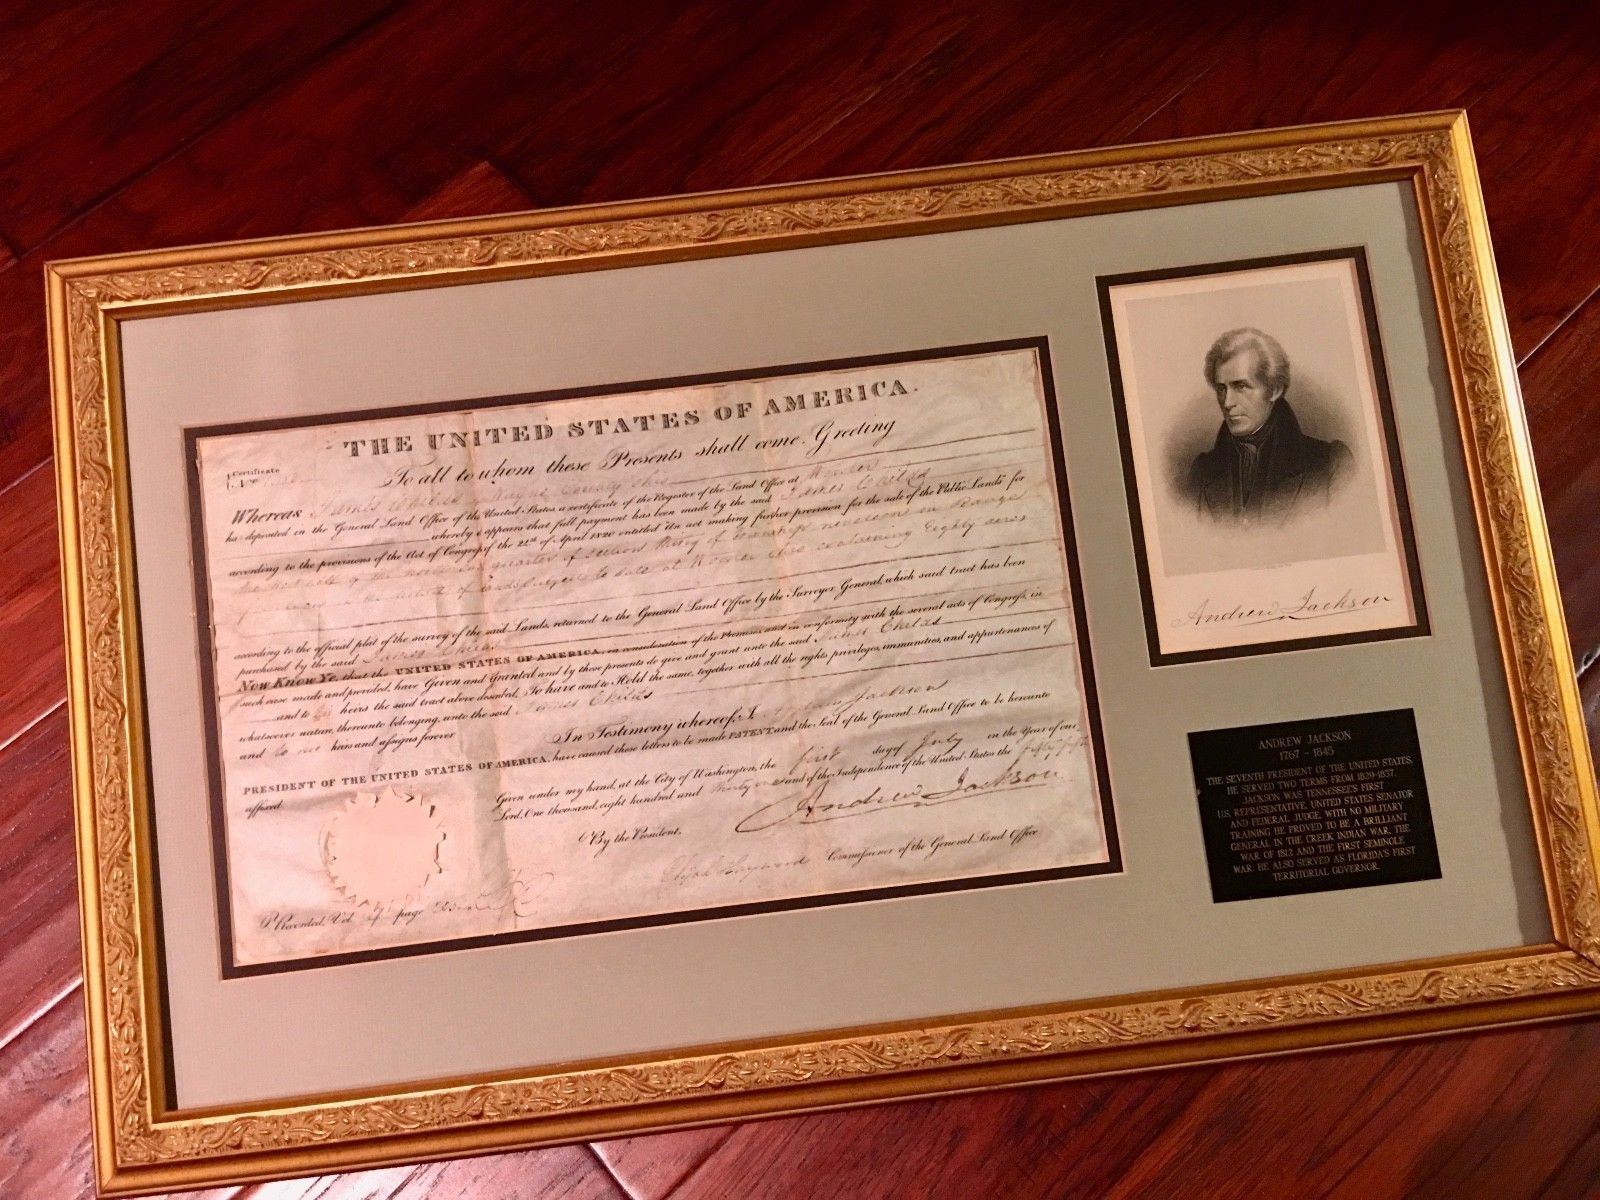 THE UNITED STATES OF AMERICA.
Certificate
No.
To all to whom these Presents shall come, Greeting
Whereas James Childs of Wayne County Ohio
has deposited in the General Land Office of the United States, a certificate of the Register of the Land Office at Wooster
whereby it appears that full payment has been made by the said James Childs
according to the provisions of the Act of Congress of the 24th of April 1820 entitled "An act making further provision for the sale of the Public Lands" for
the West half of the north quarter of section thirty of township nineteen in Range
in the district of lands subject to sale at Wooster Ohio containing Eighty acres
according to the official plat of the survey of the said Lands, returned to the General Land Office by the Surveyor General, which said tract has been
purchased by the said James Childs
Now Know Ye, that the UNITED STATES OF AMERICA, in consideration of the Premises and in conformity with the several acts of Congress, in
such case made and provided, have Given and Granted and by these presents do give and grant unto the said James Childs
and to his heirs the said tract above described, To have and to Hold the same, together with all the rights privileges, immunities, and appurtenances of
whatsoever nature, thereunto belonging, unto the said James Childs
and to his heirs and assigns forever
In Testimony whereof, I Andrew Jackson
PRESIDENT OF THE UNITED STATES OF AMERICA, have caused these letters to be made PATENT, and the Seal of the General Land Office to be hereunto
affixed.
Given under my hand, at the City of Washington, the first day of July in the Year of our
Lord, One thousand, eight hundred and thirty one and of the Independence of the United States the fifty fifth
By the President,
Andrew Jackson
Elijah Hayward Commissioner of the General Land Office
Recorded, Vol. page
Andrew Jackson
ANDREW JACKSON
1767 - 1845
THE SEVENTH PRESIDENT OF THE UNITED STATES,
HE SERVED TWO TERMS FROM 1829-1837.
JACKSON WAS TENNESSEE'S FIRST
U.S. REPRESENTATIVE, UNITED STATES SENATOR
AND FEDERAL JUDGE. WITH NO MILITARY
TRAINING HE PROVED TO BE A BRILLIANT
GENERAL IN THE CREEK INDIAN WAR, THE
WAR OF 1812 AND THE FIRST SEMINOLE
WAR. HE ALSO SERVED AS FLORIDA'S FIRST
TERRITORIAL GOVERNOR.